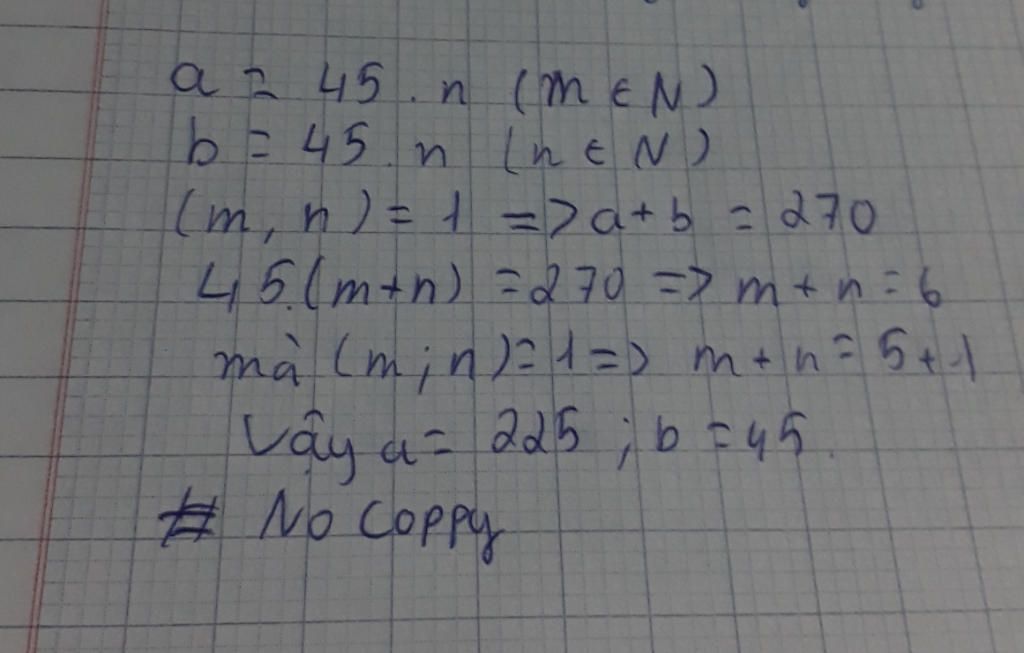 a = 45 . n (m ∈ N)
b = 45 . n (n ∈ N)
(m, n) = 1 => a + b = 270
45.(m+n) = 270 => m + n = 6
mà (m; n) = 1 => m + n = 5 + 1
Vậy a = 225 ; b = 45.
# No Coppy